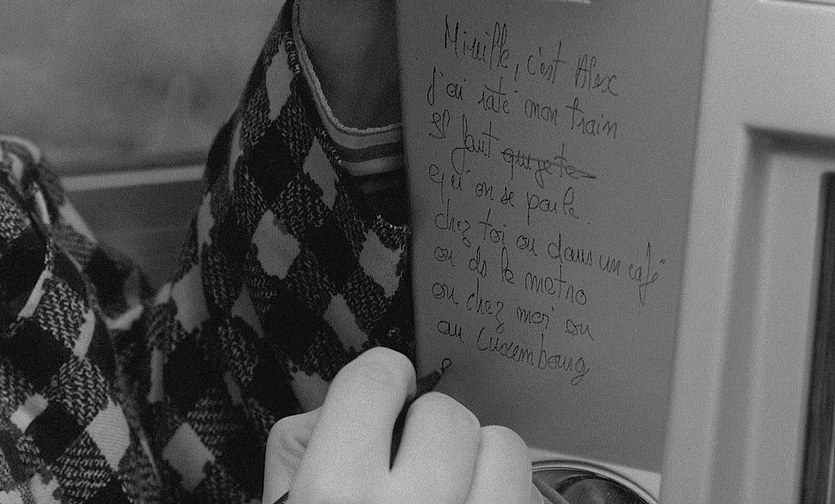 Mireille, c'est Alex
j'ai raté mon train
Il faut que je te
qu'on se parle.
chez toi ou dans un café
ou ds le metro
ou chez moi ou
au Luxembourg
o